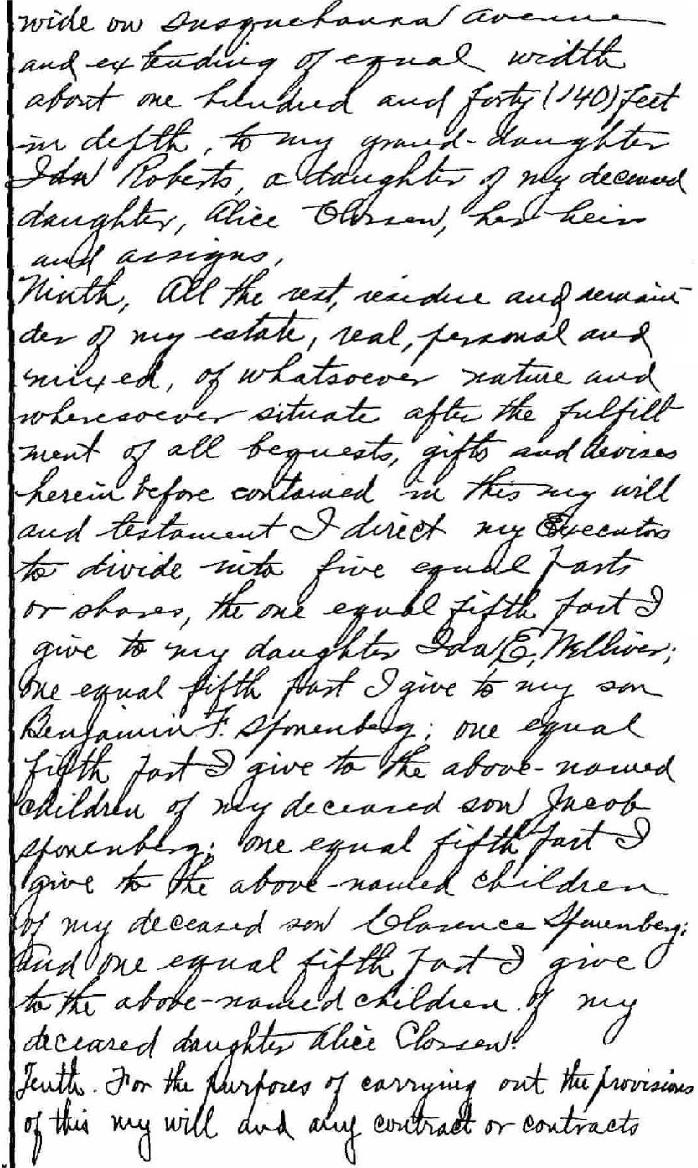 wide on Susquehanna Avenue
and extending of equal width
about one hundred and forty (140) feet
in depth, to my grand-daughter
Ida Roberts, a daughter of my deceased
daughter, Alice Clossen, her heirs
and assigns,
Ninth, All the rest, residue and remain
der of my estate, real, personal and
mixed, of whatsoever nature and
wheresoever situate after the fulfill
ment of all bequests, gifts and devises
herein before contained in this my will
and testament I direct my Executors
to divide into five equal parts
or shares, the one equal fifth part I
give to my daughter Ida E. Welliver;
one equal fifth part I give to my son
Benjamin F. Sponenberg; one equal
fifth part I give to the above-named
children of my deceased son Jacob
Sponenberg; one equal fifth part I
give to the above-named children
of my deceased son Clarence Sponenberg;
and one equal fifth part I give
to the above-named children of my
deceased daughter Alice Clossen.
Tenth. For the purposes of carrying out the provisions
of this my will and any contract or contracts